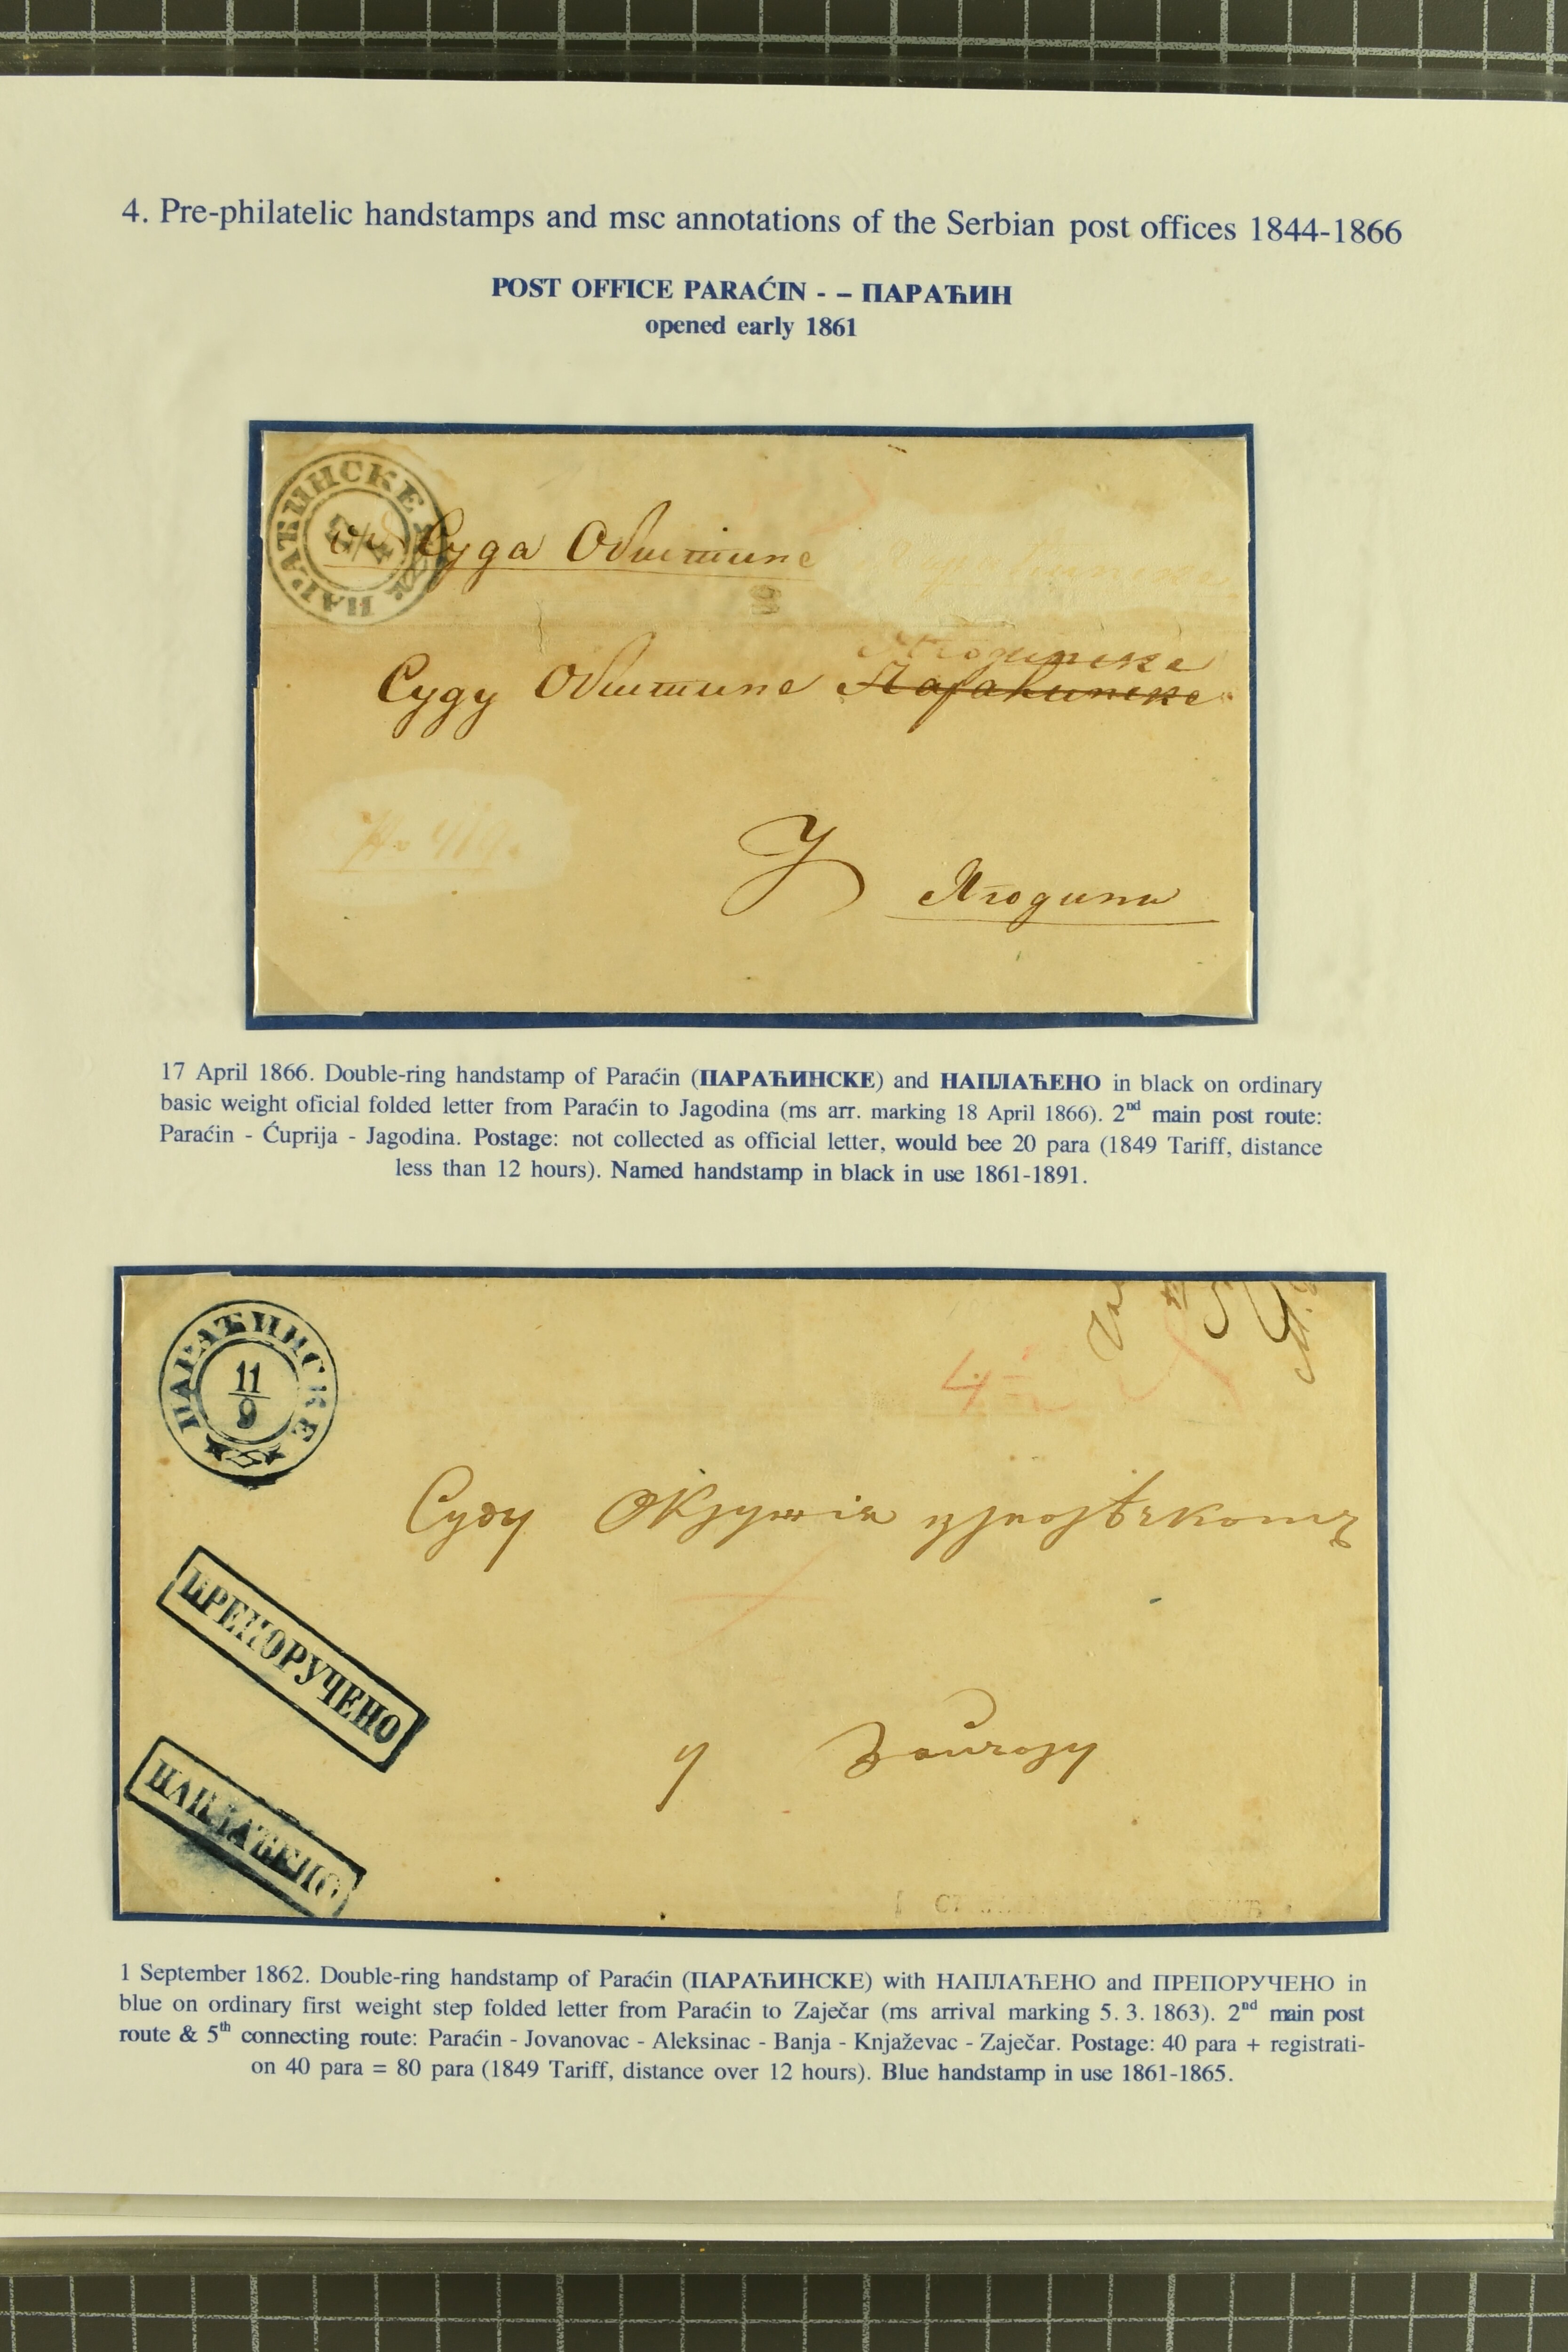 4. Pre-philatelic handstamps and msc annotations of the Serbian post offices 1844-1866
POST OFFICE PARAĆIN - – ПАРАЋИН
opened early 1861
ПАРАЋИНСКЕ
Суда Обштине
Суду Обштине Параћинске
У Ягодини
17 April 1866. Double-ring handstamp of Paraćin (ПАРАЋИНСКЕ) and НАПЛАЋЕНО in black on ordinary
basic weight oficial folded letter from Paraćin to Jagodina (ms arr. marking 18 April 1866). 2nd main post route:
Paraćin - Ćuprija - Jagodina. Postage: not collected as official letter, would bee 20 para (1849 Tariff, distance
less than 12 hours). Named handstamp in black in use 1861-1891.
ПАРАЋИНСКЕ
11
9
Суду Окружія
ПРЕПОРУЧЕНО
у
НАПЛАЋЕНО
1 September 1862. Double-ring handstamp of Paraćin (ПАРАЋИНСКЕ) with НАПЛАЋЕНО and ПРЕПОРУЧЕНО in
blue on ordinary first weight step folded letter from Paraćin to Zaječar (ms arrival marking 5. 3. 1863). 2nd main post
route & 5th connecting route: Paraćin - Jovanovac - Aleksinac - Banja - Knjaževac - Zaječar. Postage: 40 para + registrati-
on 40 para = 80 para (1849 Tariff, distance over 12 hours). Blue handstamp in use 1861-1865.